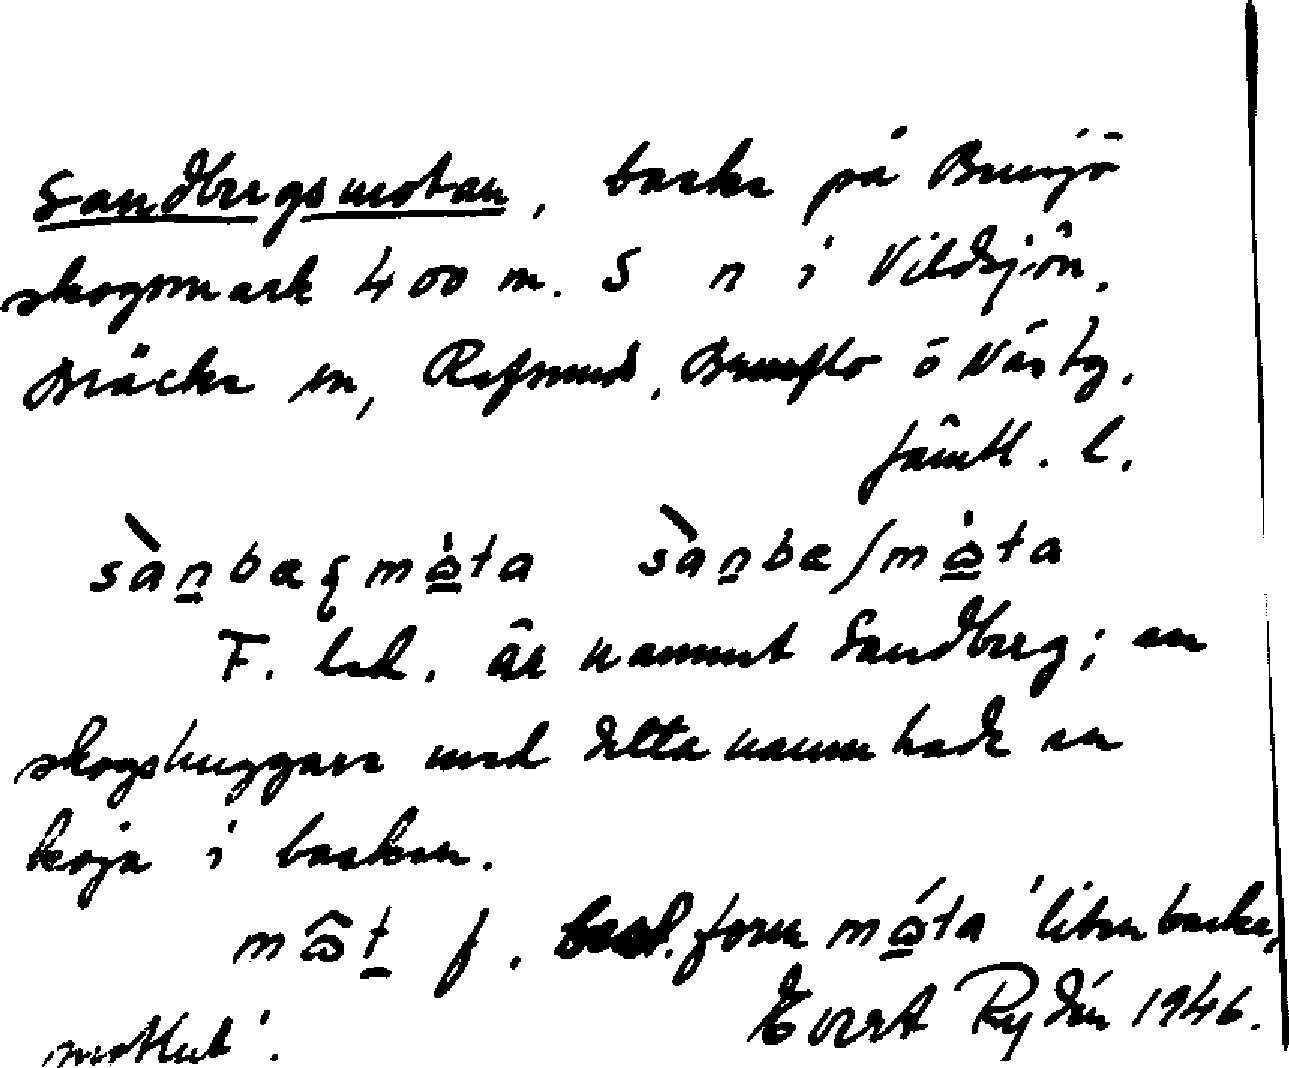 Sandbergsmotan, backe på Bensjö
skogsmark 400 m. S n i Vildsjön.
Bräcke sn, Refsund, Brunflo o Näs tg.
Jämtl. l.
sàn̠bæʂmɷ̠̀ta sàn̠bæʃmɷ̠̀ta
F. led. är namnet Sandberg; en
skogshuggare med detta namn hade en
koja i backen.
mɷ̂t̠ f. best. form mɷ̠́ta 'liten backe,
motlut'. Evert Rydén 1946.